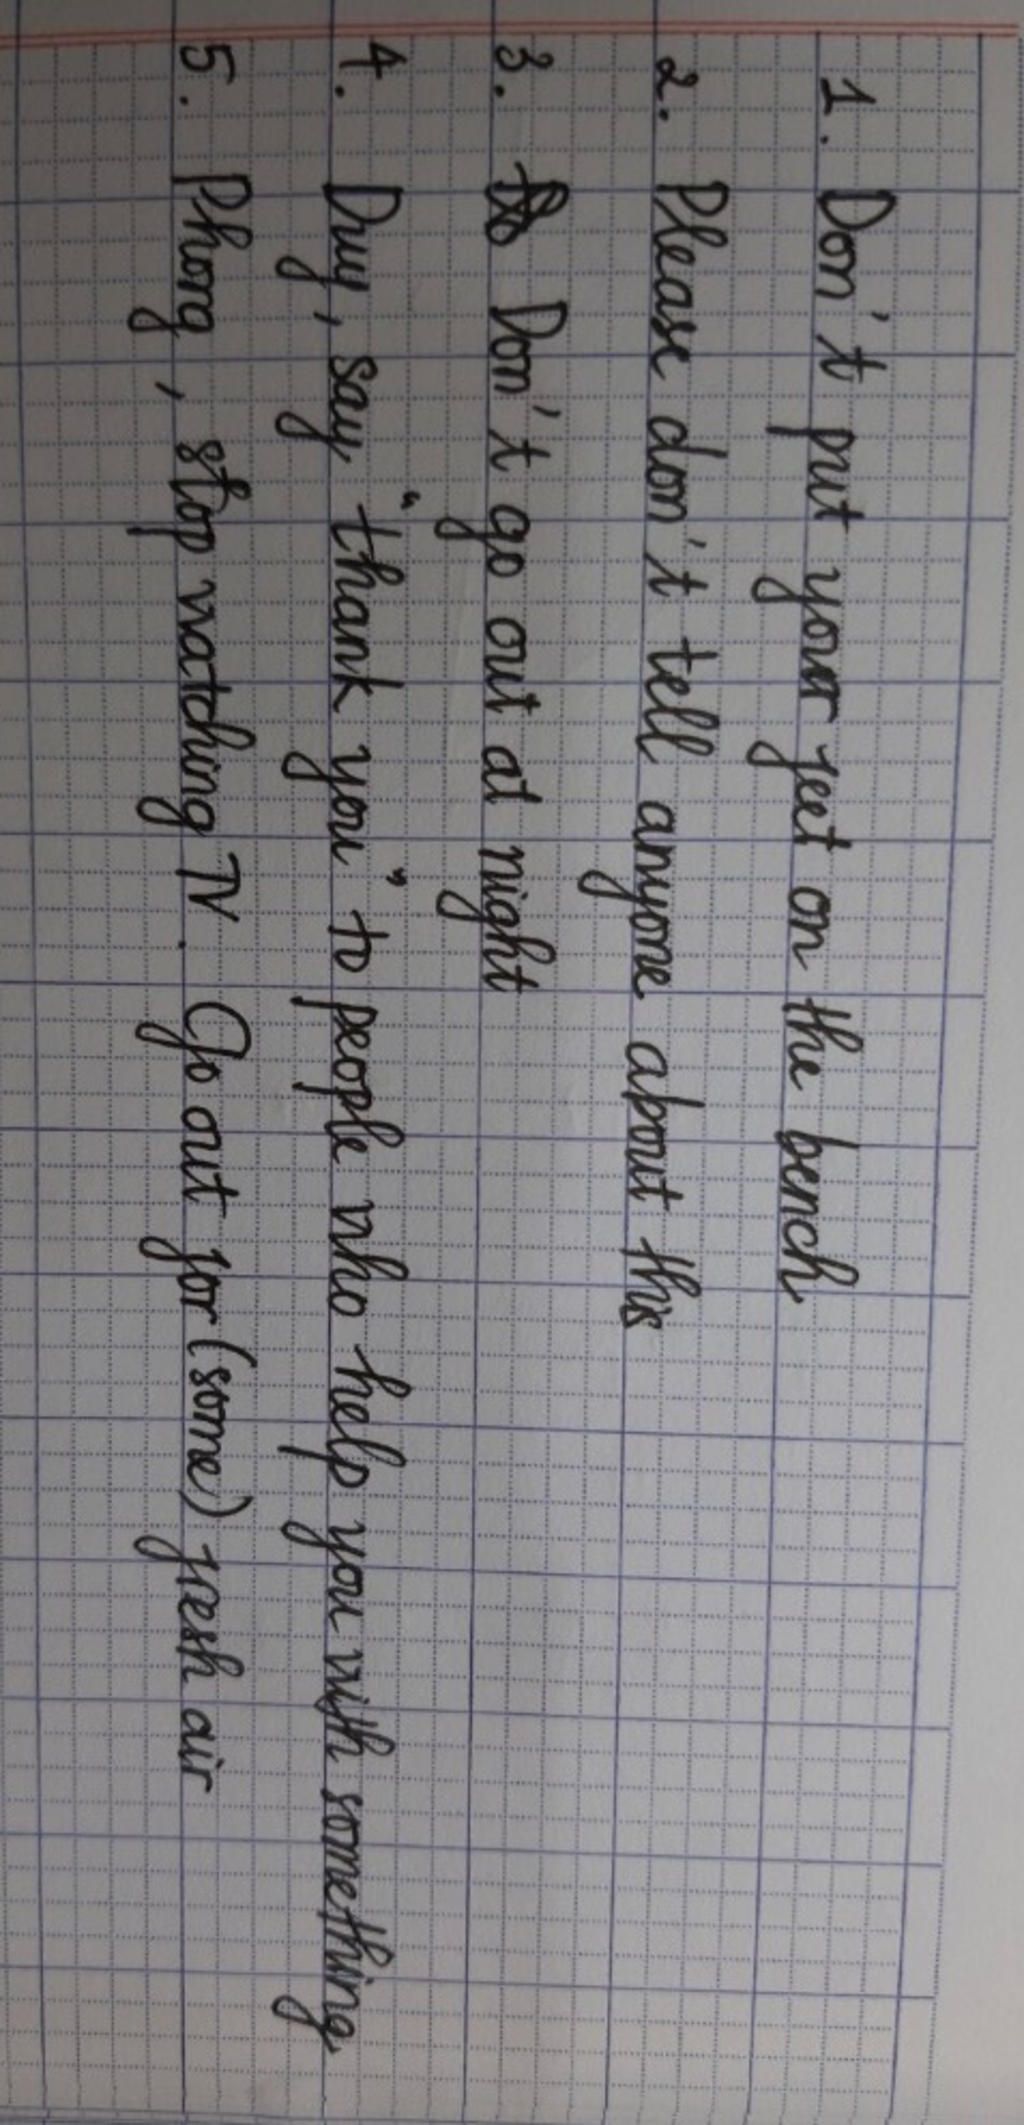 1. Don't put your feet on the bench
2. Please don't tell anyone about this
3. Don't go out at night
4. Duy, say "thank you" to people who help you with something
5. Phong, stop watching TV. Go out for (some) fresh air